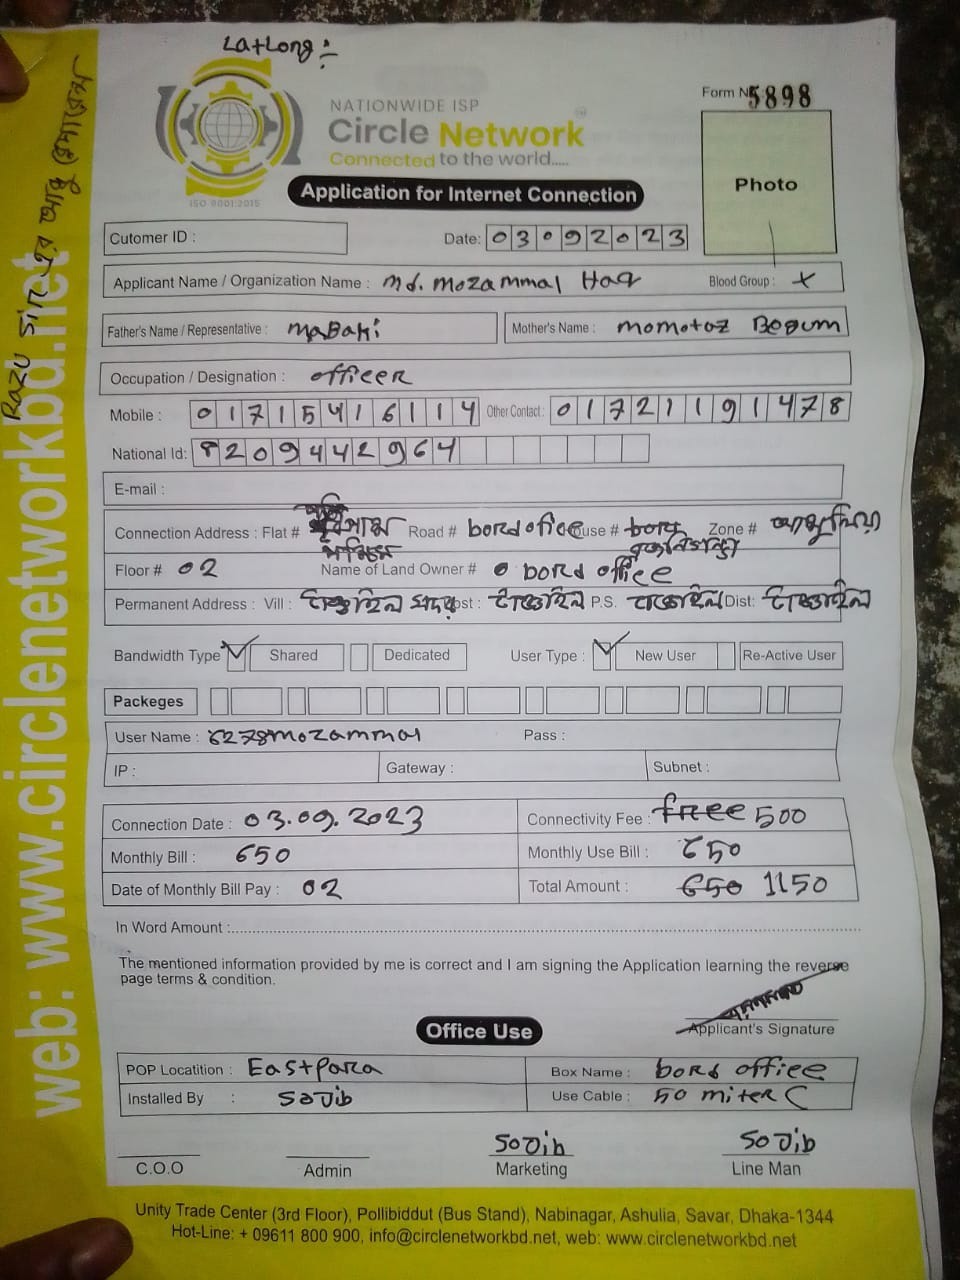 Lat Long :-
Form N 5898
NATIONWIDE ISP
Circle Network
Connected to the world.....
ISO 9001:2015
Photo
Application for Internet Connection
Cutomer ID :
Date: 03092023
Applicant Name / Organization Name : Md. Mozammal Haq Blood Group : X
Father's Name / Representative : MaBaKi Mother's Name : Momotaz Begum
Occupation / Designation : officer
Mobile : 01715416114 Other Contact : 01721191478
National Id: 8209442964
E-mail :
Connection Address : Flat # Road # bord ofice use # Zone #
পশ্চিম
Floor # 02 Name of Land Owner # bord office
Permanent Address : Vill : টাঙ্গাইল সদর ost : টাঙ্গাইল P.S. টাঙ্গাইল Dist: টাঙ্গাইল
Bandwidth Type Shared Dedicated User Type : New User Re-Active User
Packeges
User Name : 6278mozammal Pass :
IP : Gateway : Subnet :
Connection Date : 03.09.2023 Connectivity Fee : free 500
Monthly Bill : 650 Monthly Use Bill : 650
Date of Monthly Bill Pay : 02 Total Amount : 650 1150
In Word Amount :
The mentioned information provided by me is correct and I am signing the Application learning the reverse
page terms & condition.
Applicant's Signature
Office Use
POP Locatition : East Para Box Name : bord office
Installed By : Sojib Use Cable : 50 miter C
Sojib Sojib
C.O.O Admin Marketing Line Man
Unity Trade Center (3rd Floor), Pollibiddut (Bus Stand), Nabinagar, Ashulia, Savar, Dhaka-1344
Hot-Line: + 09611 800 900, info@circlenetworkbd.net, web: www.circlenetworkbd.net
web: www.circlenetworkbd.net
Razu Sir এর